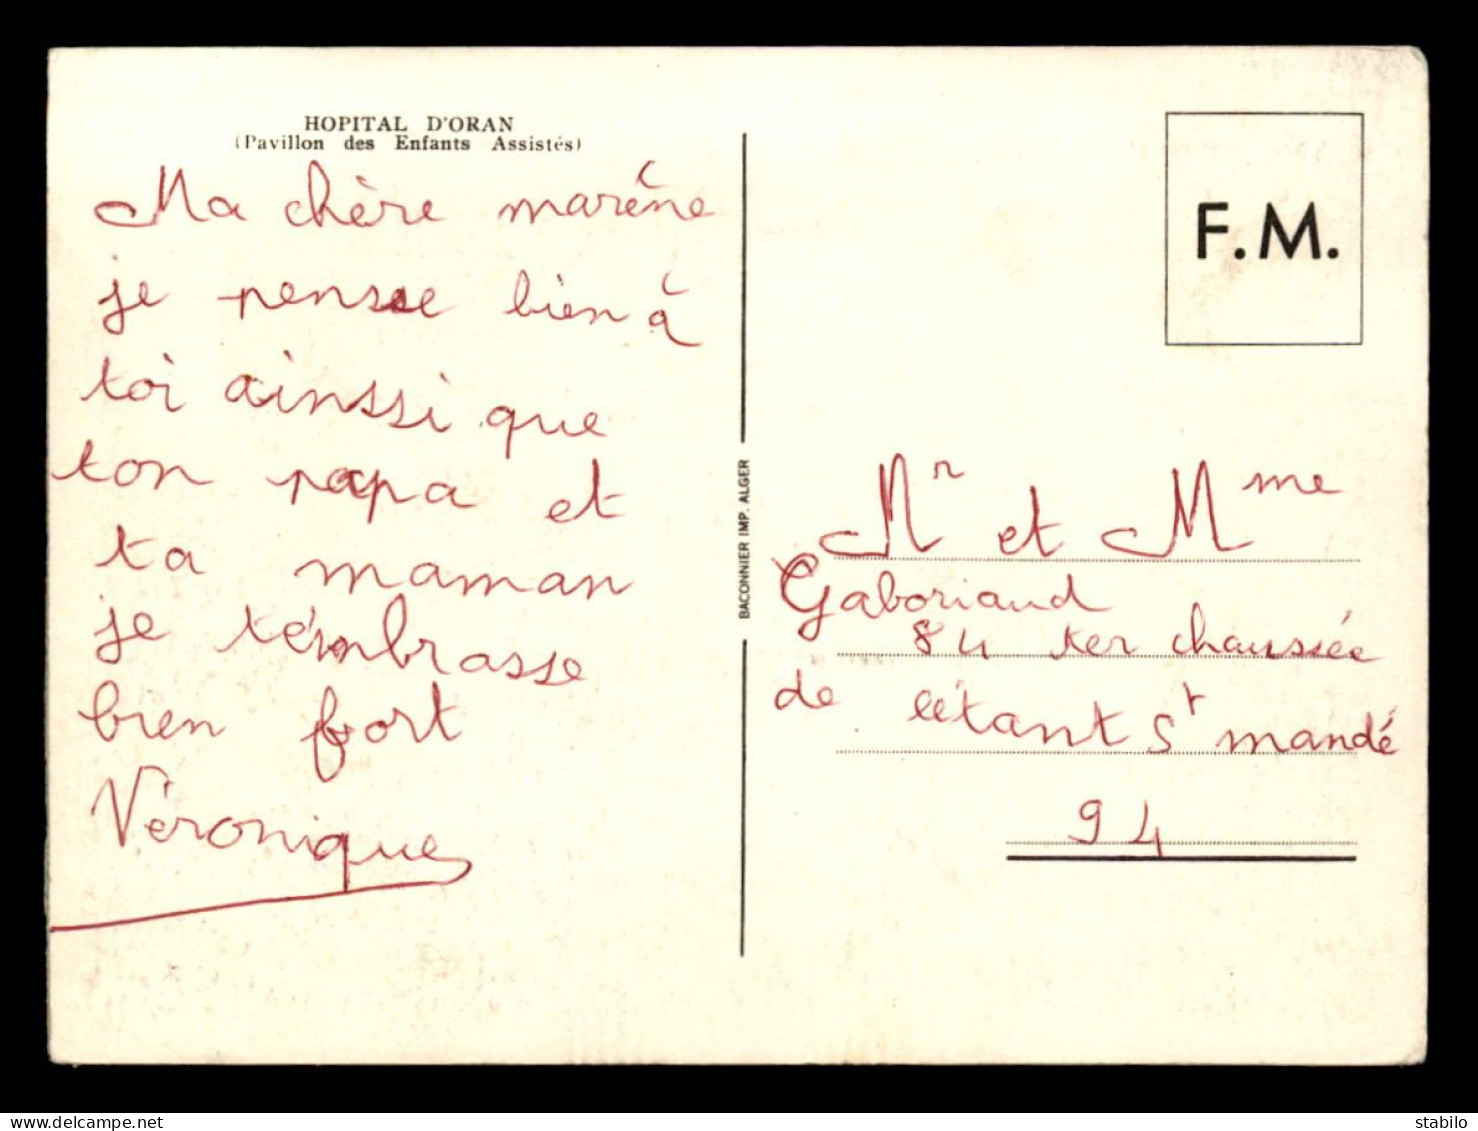 HOPITAL D'ORAN
(Pavillon des Enfants Assistés)
Ma chère marène
je pense bien à
toi ainssi que
ton papa et
ta maman
je t'émbrasse
bien fort
Véronique
BACONNIER IMP. ALGER
F.M.
Mr et Mme
Gaboriaud
84 ter chaussée
de l'étant St mandé
94
delcampe.net
stabilo